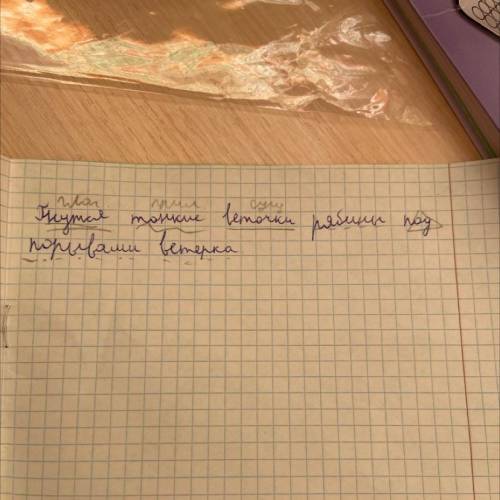 глаг прил сущ
Гнутся тонкие веточки рябины под
порывами ветерка